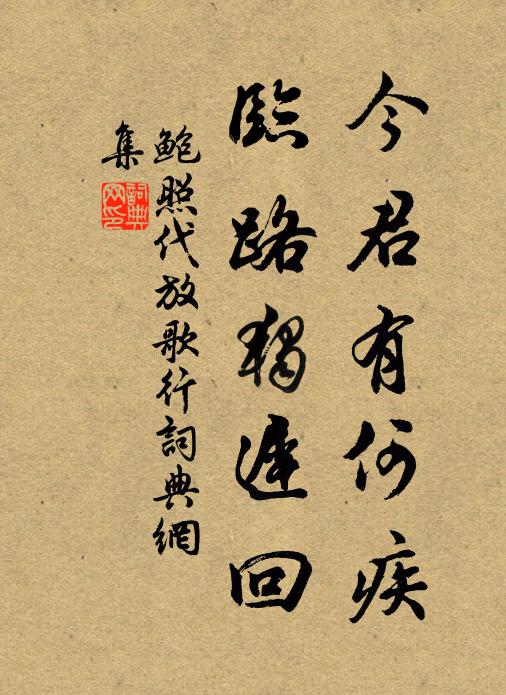 今君有何疾
臨路獨遲回
鮑照代放歌行詞典網
集
詞典網印